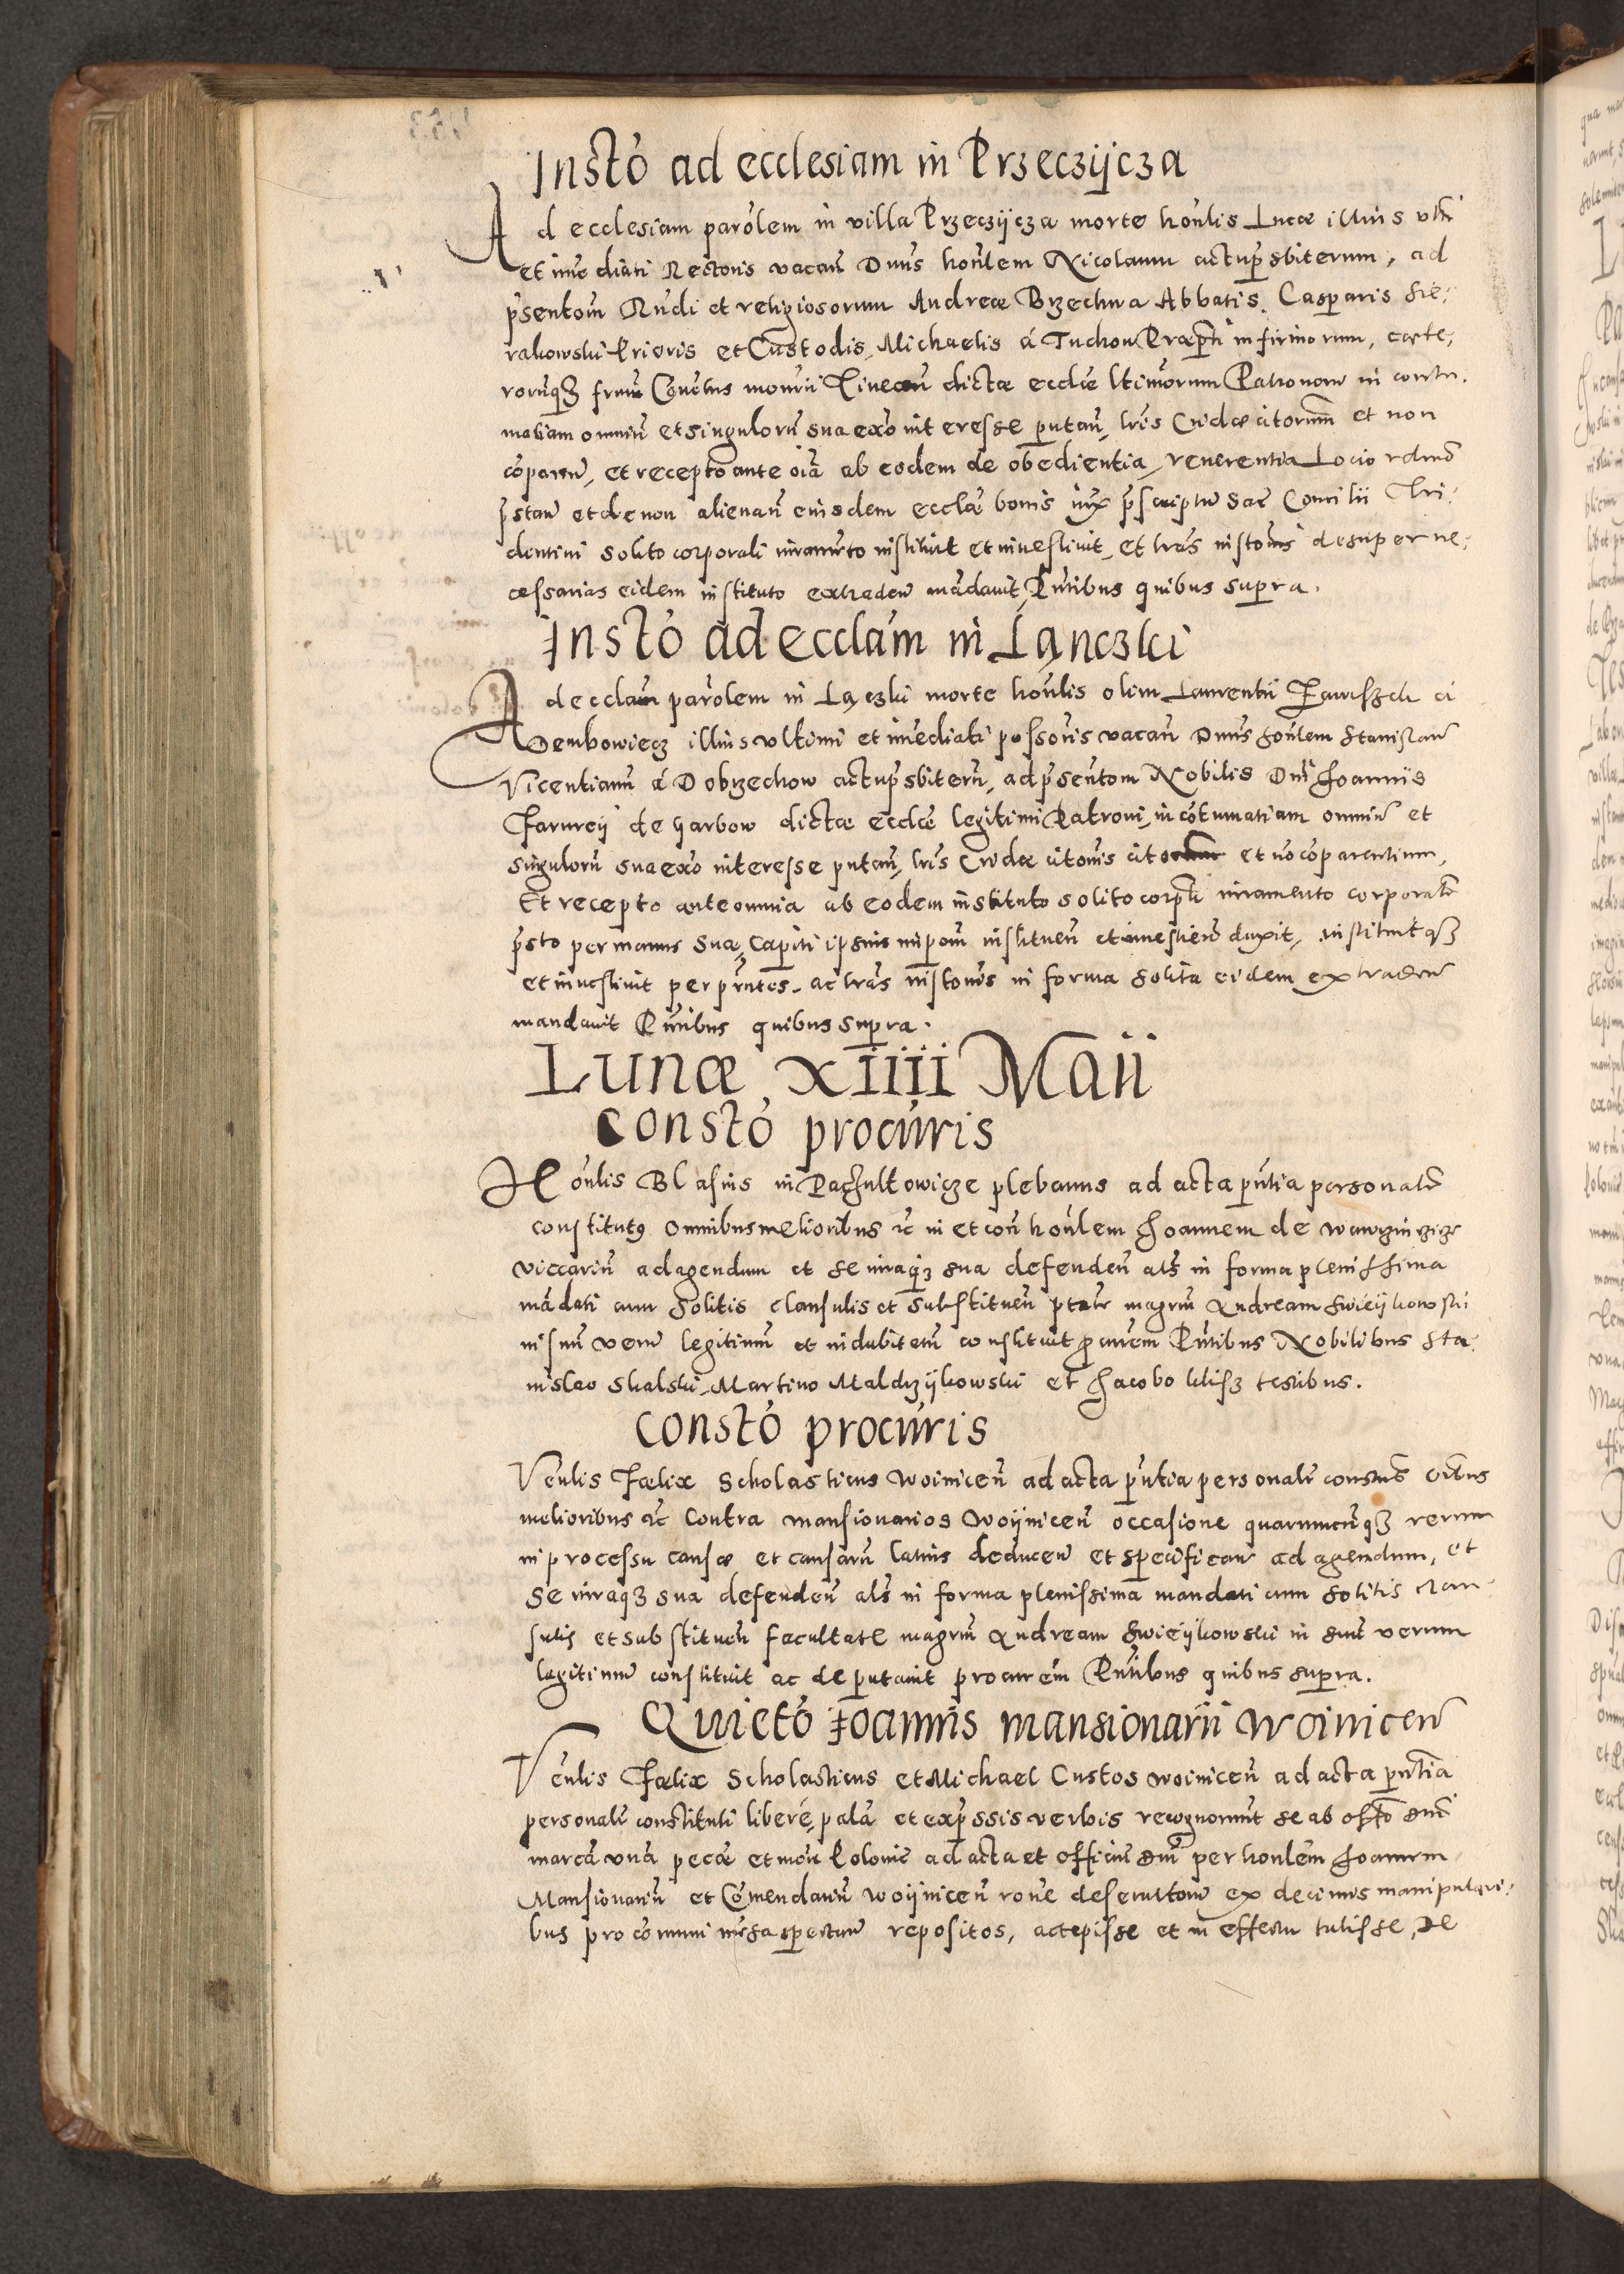 Instõ ad ecclesiam in Przeczÿcza
Ad ecclesiam parõlem in villa Przeczÿcza morte honlis Lucæ illius vlti
et imediati Rectoris vacan Dnus honlem Nicolaum actu p̃sbiterum, ad
p̃sentom Rndi et religiosorum Andreæ Brzechwa Abbatis, Casparis Sie,
rakowski Prioris et Custodis, Michaelis á Tuchow Præpti infirmorum, cæte,
rorumq3 frum Conẽtus monrii Tinecen dictæ ecclæ ltimorum Patronorum in contu,
matiam omniu et singuloru sua exo interesse putan, lris Cridæ citorum et non
cõparen, et recepto ante oia ab eodem de obedientia, reuerentia Locio rdmo
p̃stan et de non alienan eiusdem ecclæ bonis iux p̃scriptu Sac Concilii Tri,
dentini solito corporali iuramẽto instituit et inuestiuit, et lras instonis desuper ne,
cessarias eidem instituto extraden mãdauit, Pntibus quibus supra.
Instõ ad ecclãm in Łąnczki
Ad ecclam parõlem in Łączki morte honlis olim Laurentii á
Dembowiecz illius vltimi et imediati possoris vacan Dnus honlem Stanislau
Vicentianu á Dobrzechow actu p̃sbiteru, ad p̃sentom Nobilis Dni Joannis
Farurey de Garbow dictæ ecclæ legitimi Patroni, in cõtumatiam omniu et
singuloru sua exo interesse putan, lris Cridæ citonis et nõ cõparentium,
Et recepto ante omnia ab eodem instituto solito corpli iuramento corporalr
p̃sto per manus suæ Capiti ipsius impom instituen et inuestien duxit, instituitq3
et inuestiuit per pntes. ac lras instonis in forma solita eidem extraden
mandauit Pntibus quibus supra.
Lunæ XIIII Maii
Constõ procũris
Honlis Blasius in Paczultowicze plebanus ad acta pntia personalr
constitut9 omnibus melioribus &c in et con honlem Joannem de
viccariu ad agendum et se iuraq3 sua defenden als in forma plenissima
mãdati cum solitis clausulis et substituen ptate magrum Andream Swiéykowski
in suu veru legitimu et indubitatu constituit procurem Pntibus Nobilibus Sta,
nislao Skalski, Martino Maldrzykowski et Jacobo testibus.
Constõ procũris
Venlis Fælix Scholasticus Woinicen ad acta pntia personalr constut oibus
melioribus &c Contra mansionarios Woÿnicen occasione quarumcunq3 rerum
in processu causæ et causaru latius deducen et specifican ad agendum, et
se iuraq3 sua defenden als in forma plenissima mandati cum solitis clau,
sulis et substituen facultate magrum Andream Swiéÿkowski in suu verum
legitimu constituit ac deputauit procurem Pntibus quibus supra.
Quietõ Joannis mansionarii Woinicen
Venlis Fælix Scholasticus et Michael Custos Woinicen ad acta pntia
personalr constituti liberé, palã et exp̃ssis verbis recognorunt se ab
marcã vnã pecæ et mon Polonic ad acta et officiu per honlem Joannem
Mansionariu et Cõmendariu Woÿnicen rone ex decimis manipulari,
bus pro cõmuni mẽsa spectan repositos, accepisse et in effectu tulisse, De